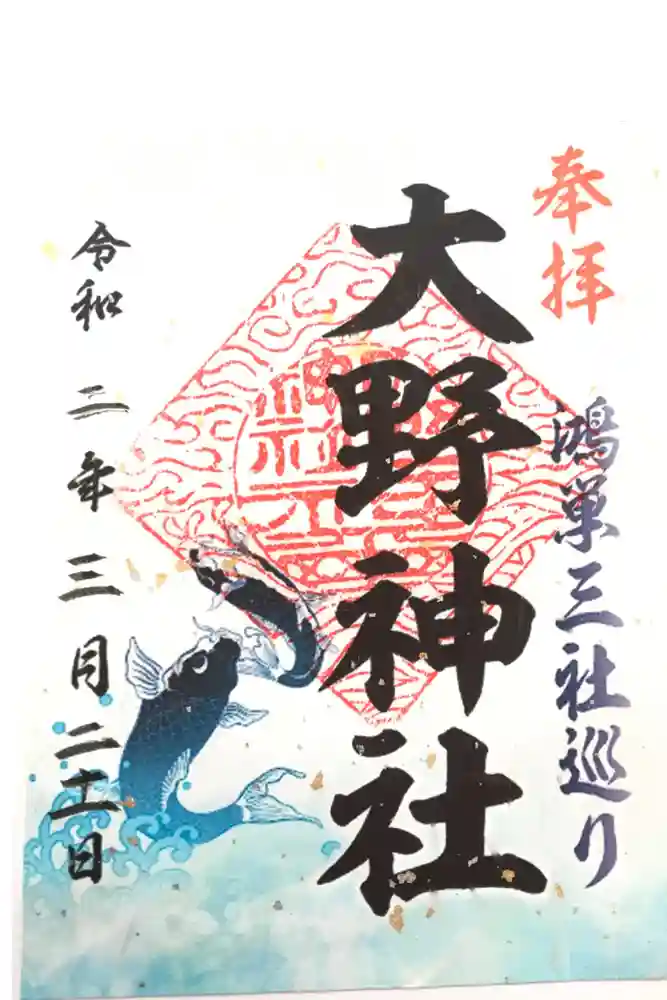 奉拝
鴻巣三社巡り
大野神社
令和二年三月二十一日